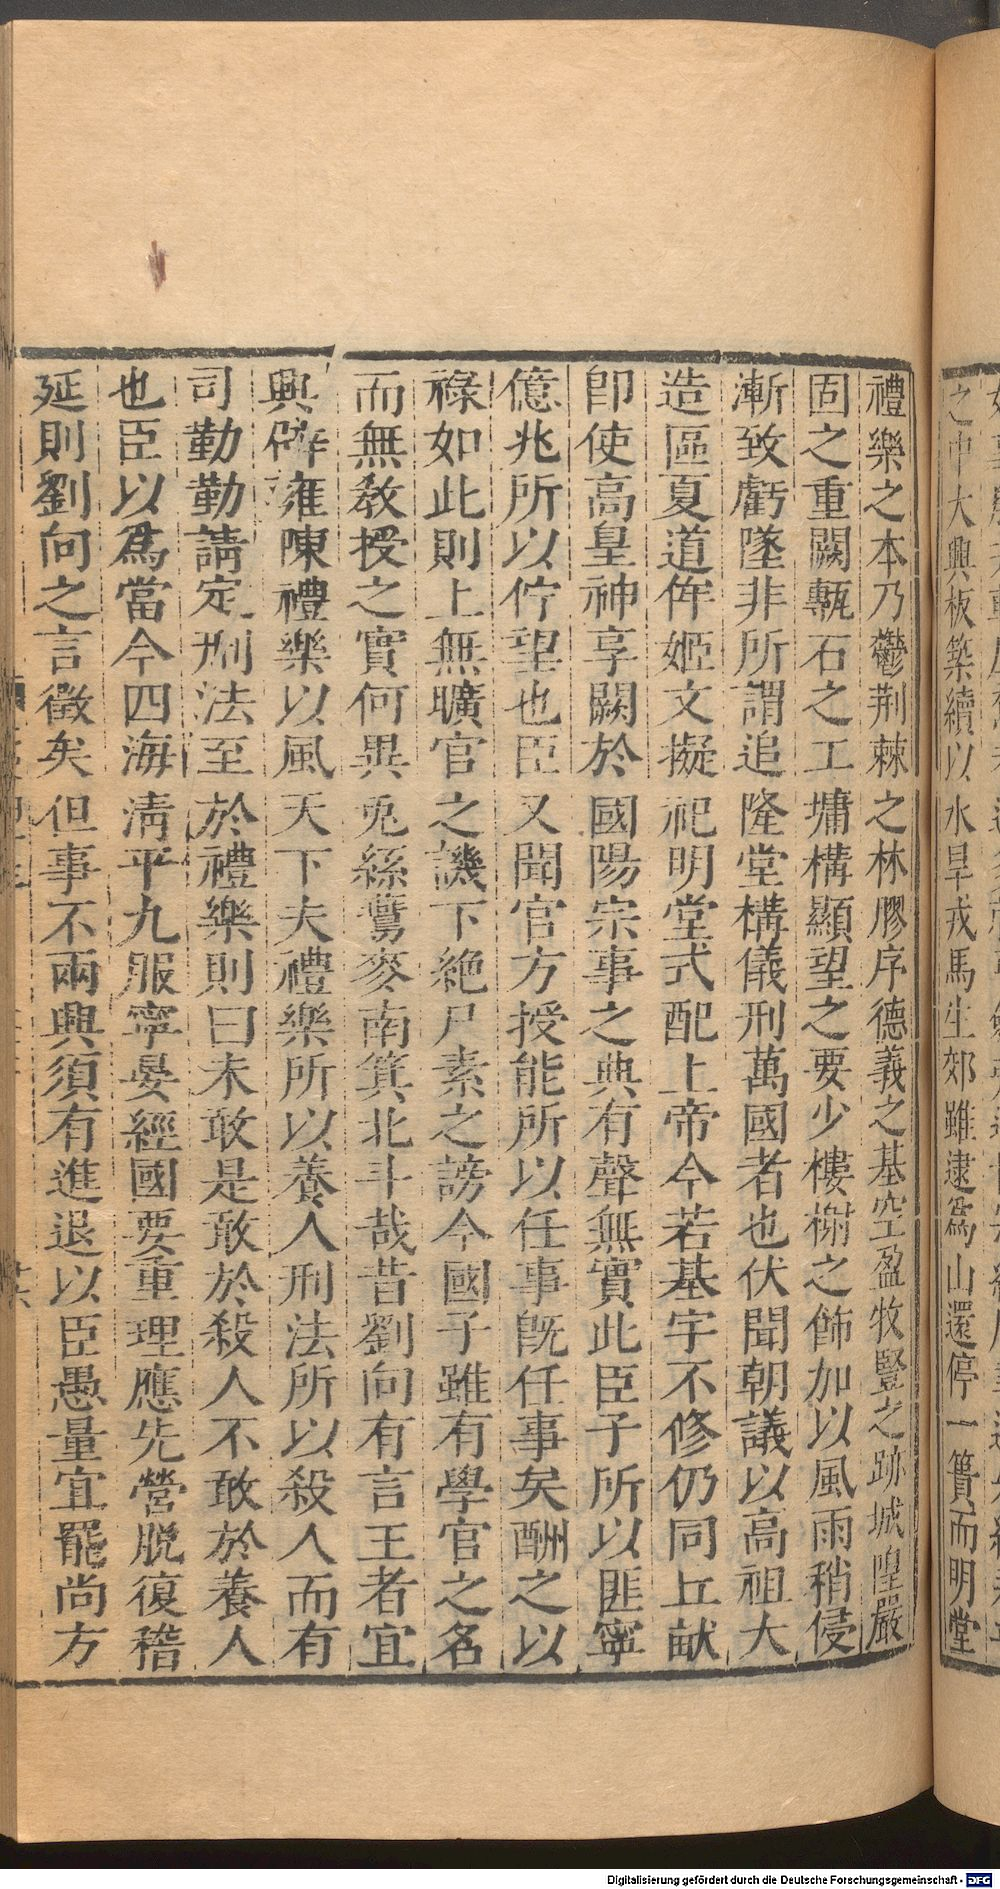 之中大興板築續以水旱戎馬生郊雖逮爲山還停一簣而明堂
禮樂之本乃鬱荆棘之林膠序德義之基空盈牧豎之跡城隍嚴
固之重闕甎石之工墉構顯望之要少樓榭之飾加以風雨稍侵
漸致虧墜非所謂追隆堂構儀刑萬國者也伏聞朝議以高祖大
造區夏道侔姬文擬祀明堂式配上帝今若基宇不修仍同丘畎
卽使高皇神享闕於國陽宗事之典有聲無實此臣子所以匪寧
億兆所以佇望也臣又聞官方授能所以任事旣任事矣酬之以
祿如此則上無曠官之譏下絶尸素之謗今國子雖有學官之名
而無敎授之實何異兎絲鷰麥南箕北斗哉昔劉向有言王者宜
興辟雍陳禮樂以風天下夫禮樂所以養人刑法所以殺人而有
司勤勤請定刑法至於禮樂則曰未敢是敢於殺人不敢於養人
也臣以爲當今四海淸平九服寧晏經國要重理應先營脫復稽
延則劉向之言徵矣但事不兩興須有進退以臣愚量宜罷尚方
Digitalisierung gefördert durch die Deutsche Forschungsgemeinschaft - DFG